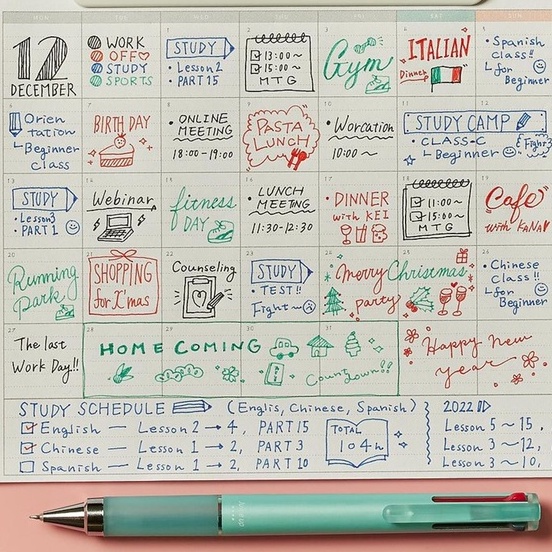 12
DECEMBER
WORK
OFF
STUDY
SPORTS
1
STUDY
• Lesson 2
• PART 15
2
13:00~
15:00~
MTG
3
Gym
4
ITALIAN
Dinner
5
• Spanish
class!!
for
Beginner
6
Orien
tation
Beginner
class
7
BIRTHDAY
8
• ONLINE
MEETING
18:00-19:00
9
PASTA
LUNCH
10
• Worcation
10:00~
11
12
STUDY CAMP
• CLASS-C
Beginner
Fight
13
STUDY
• Lesson3
PART 1
14
Webinar
15
fitness
DAY
16
• LUNCH
MEETING
11:30-12:30
17
• DINNER
with KEI
18
11:00~
15:00~
MTG
19
Cafe
with KANA
20
Running
park
21
SHOPPING
for X'mas
22
Counseling
23
STUDY
• TEST!!
Fight~
24
25
Merry Christmas
party
26
• Chinese
class!!
for
Beginner
27
The last
Work Day!!
28
29
30
31
HOME COMING
Count down!!
Happy New
year
STUDY SCHEDULE (Englis, Chinese, Spanish)
English — Lesson 2 → 4, PART 15
Chinese — Lesson 1 → 2, PART 3
Spanish — Lesson 1 → 2, PART 10
TOTAL
104h
2022
Lesson 5 ~ 15,
Lesson 3 ~ 12,
Lesson 3 ~ 10,